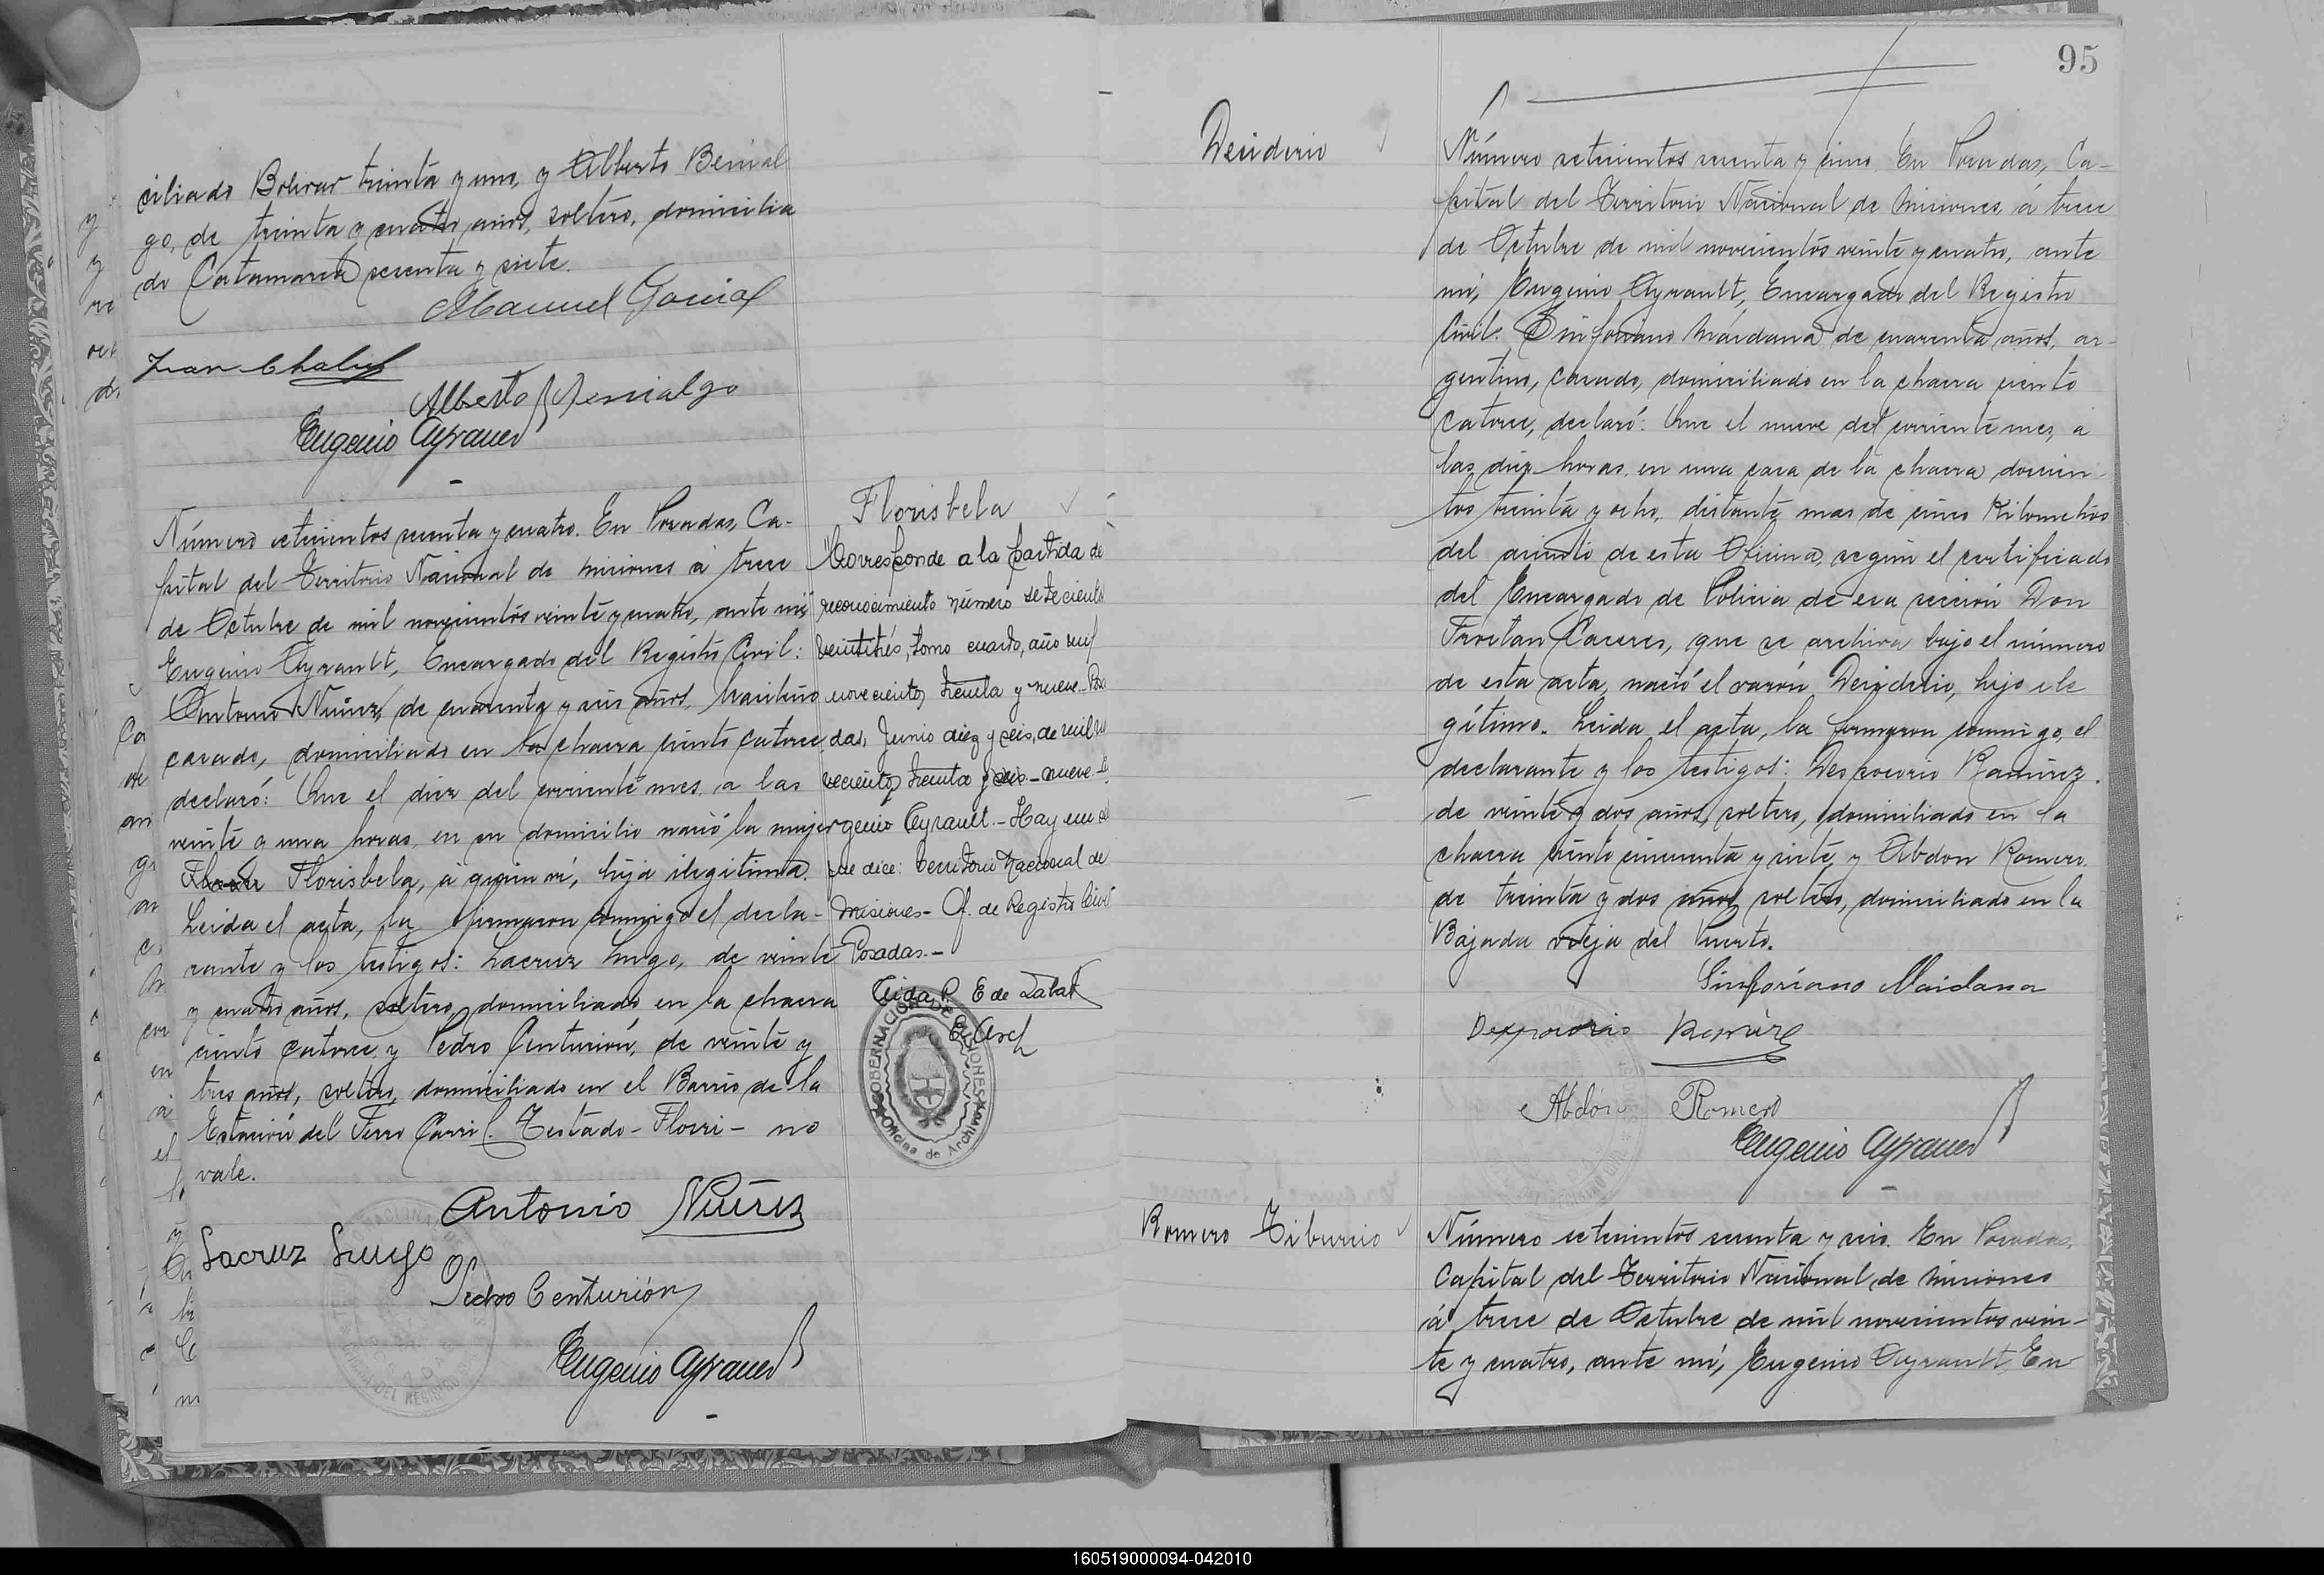 ciliado Bolivar treinta y uno, y Alberto Bernal
go, de treinta y cuatro años, soltero, domicilia
do Catamarca sesenta y siete.
Manuel
Juan
Alberto
Eugenio Ayrault
Número setecientos sesenta y cuatro. En Posadas, Ca-
pital del Territorio Nacional de Misiones á trece
de Octubre de mil novecientos veinte y cuatro, ante mi,
Eugenio Ayrault, Encargado del Registro Civil:
Antonio Núñez, de cuarenta y seis años, brasileño
casado, domiciliado en la chacra ciento catorce
declaró: Que el diez del corriente mes, a las
veinte y una horas, en su domicilio nació la mujer
Florisbela, á quien ví, hija ilegitima.
Leida el acta, la firmaron conmigo el decla-
rante y los testigos: Lacruz Lugo, de veinte
y cuatro años, soltero, domiciliado en la chacra
ciento catorce, y Pedro Centurión, de veinte y
tres años, soltero, domiciliado en el Barrio de la
Estación del Ferro Carril. Testado - Florri - no
vale.
Antonio Núñez
Lacruz Lugo
Pedro Centurión
Eugenio Ayrault
Florisbela
Corresponde a la partida de
reconocimiento número setecientos
veintitrés, tomo cuarto, año mil
novecientos treinta y nueve.- Posa
das, Junio diez y seis, de mil no
vecientos treinta y nueve.- Eu
genio Ayrault.- Hay un sello
que dice: Territorio Nacional de
Misiones - Of. de Registro Civil
Posadas.-
E de
GOBERNACION DE MISIONES
Oficina de Archivo
95
Desiderio
Número setecientos sesenta y cinco. En Posadas, Ca-
pital del Territorio Nacional de Misiones, á trece
de Octubre de mil novecientos veinte y cuatro, ante
mi, Eugenio Ayrault, Encargado del Registro
Civil: Sinforiano Maidana de cuarenta años, ar-
gentino, casado, domiciliado en la chacra ciento
catorce, declaró: Que el nueve del corriente mes, á
las diez horas, en una casa de la chacra doscien-
tos treinta y ocho, distante mas de cinco Kilometros
del asiento de esta Oficina, según el certificado
del Encargado de Policia de esa sección Don
Tristan Caceres, que se archiva bajo el número
de esta acta, nació el varón Desiderio, hijo ile
gítimo. Leida el acta, la firmaron conmigo, el
declarante y los testigos: Desposorio Ramirez.
de veinte y dos años, soltero, domiciliado en la
chacra ciento cincuenta y siete, y Abdon Romero.
de treinta y dos años, soltero, domiciliado en la
Bajada vieja del Puerto.
Sinforiano Maidana
Desposorio Ramirez
Abdón Romero
Eugenio Ayrault
Romero Tiburcio
Número setecientos sesenta y seis. En Posadas,
Capital del Territorio Nacional de Misiones
á trece de Octubre de mil novecientos vein-
te y cuatro, ante mi, Eugenio Ayrault, En
160519000094-042010